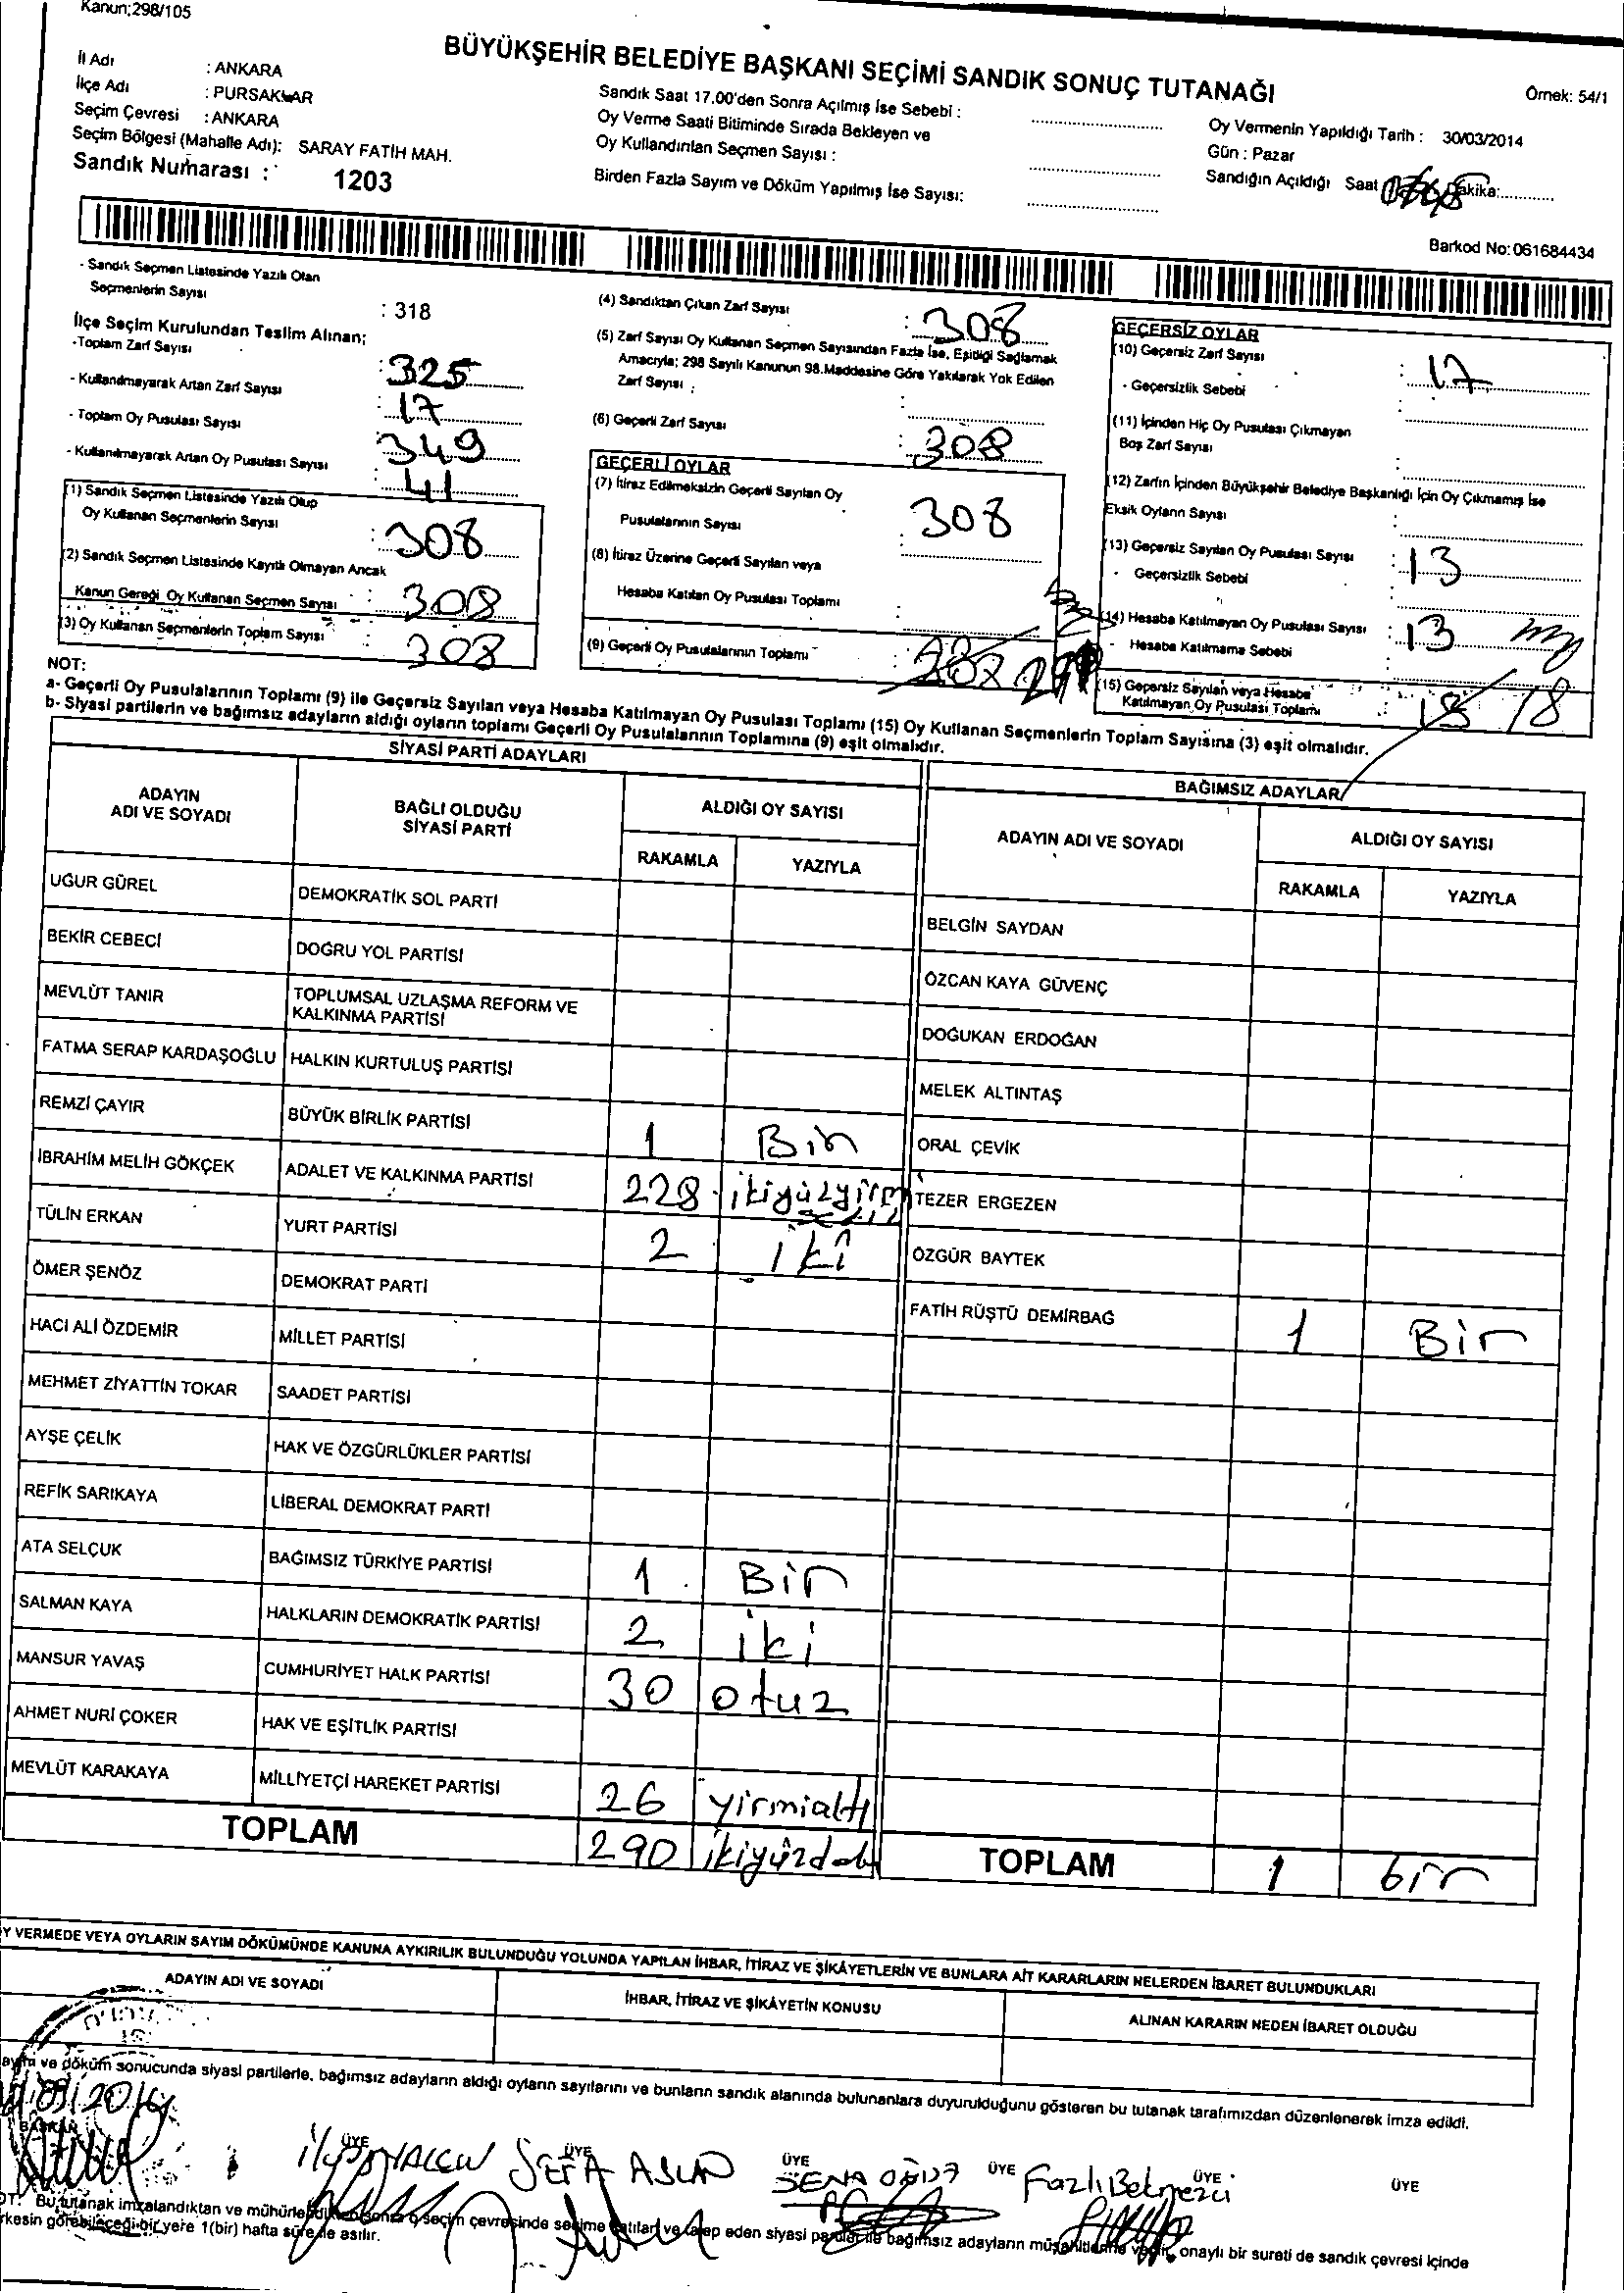 Kanun;298/105
BÜYÜKŞEHİR BELEDİYE BAŞKANI SEÇİMİ SANDIK SONUÇ TUTANAĞI
Örnek: 54/1
İl Adı : ANKARA
İlçe Adı : PURSAKLAR
Seçim Çevresi : ANKARA
Seçim Bölgesi (Mahalle Adı): SARAY FATİH MAH.
Sandık Numarası : 1203
Sandık Saat 17.00'den Sonra Açılmış İse Sebebi :
Oy Verme Saati Bitiminde Sırada Bekleyen ve
Oy Kullandırılan Seçmen Sayısı :
Birden Fazla Sayım ve Döküm Yapılmış İse Sayısı:
Oy Vermenin Yapıldığı Tarih : 30/03/2014
Gün : Pazar
Sandığın Açıldığı Saat Dakika:
Barkod No:061684434
- Sandık Seçmen Listesinde Yazılı Olan
Seçmenlerin Sayısı : 318
İlçe Seçim Kurulundan Teslim Alınan;
-Toplam Zarf Sayısı : 325
- Kullanılmayarak Artan Zarf Sayısı : 17
- Toplam Oy Pusulası Sayısı : 349
- Kullanılmayarak Artan Oy Pusulası Sayısı : 41
(1) Sandık Seçmen Listesinde Yazılı Olup
Oy Kullanan Seçmenlerin Sayısı : 308
(2) Sandık Seçmen Listesinde Kayıtlı Olmayan Ancak
Kanun Gereği Oy Kullanan Seçmen Sayısı : 308
(3) Oy Kullanan Seçmenlerin Toplam Sayısı : 308
(4) Sandıktan Çıkan Zarf Sayısı : 308
(5) Zarf Sayısı Oy Kullanan Seçmen Sayısından Fazla İse, Eşitliği Sağlamak
Amacıyla; 298 Sayılı Kanunun 98.Maddesine Göre Yakılarak Yok Edilen
Zarf Sayısı :
(6) Geçerli Zarf Sayısı : 308
GEÇERLİ OYLAR
(7) İtiraz Edilmeksizin Geçerli Sayılan Oy
Pusulalarının Sayısı : 308
(8) İtiraz Üzerine Geçerli Sayılan veya
Hesaba Katılan Oy Pusulası Toplamı :
(9) Geçerli Oy Pusulalarının Toplamı :
GEÇERSİZ OYLAR
(10) Geçersiz Zarf Sayısı : 17
- Geçersizlik Sebebi :
(11) İçinden Hiç Oy Pusulası Çıkmayan
Boş Zarf Sayısı :
(12) Zarfın İçinden Büyükşehir Belediye Başkanlığı İçin Oy Çıkmamış İse
Eksik Oyların Sayısı :
(13) Geçersiz Sayılan Oy Pusulası Sayısı : 13
- Geçersizlik Sebebi
(14) Hesaba Katılmayan Oy Pusulası Sayısı : 13
- Hesaba Katılmama Sebebi :
(15) Geçersiz Sayılan veya Hesaba
Katılmayan Oy Pusulası Toplamı : 18
NOT:
a- Geçerli Oy Pusulalarının Toplamı (9) ile Geçersiz Sayılan veya Hesaba Katılmayan Oy Pusulası Toplamı (15) Oy Kullanan Seçmenlerin Toplam Sayısına (3) eşit olmalıdır.
b- Siyasi partilerin ve bağımsız adayların aldığı oyların toplamı Geçerli Oy Pusulalarının Toplamına (9) eşit olmalıdır.
SİYASİ PARTİ ADAYLARI
ADAYIN ADI VE SOYADI BAĞLI OLDUĞU SİYASİ PARTİ ALDIĞI OY SAYISI
RAKAMLA YAZIYLA
UĞUR GÜREL DEMOKRATİK SOL PARTİ
BEKİR CEBECİ DOĞRU YOL PARTİSİ
MEVLÜT TANIR TOPLUMSAL UZLAŞMA REFORM VE KALKINMA PARTİSİ
FATMA SERAP KARDAŞOĞLU HALKIN KURTULUŞ PARTİSİ
REMZİ ÇAYIR BÜYÜK BİRLİK PARTİSİ 1 Bir
İBRAHİM MELİH GÖKÇEK ADALET VE KALKINMA PARTİSİ 228
TÜLİN ERKAN YURT PARTİSİ 2 iki
ÖMER ŞENÖZ DEMOKRAT PARTİ
HACI ALİ ÖZDEMİR MİLLET PARTİSİ
MEHMET ZİYATTİN TOKAR SAADET PARTİSİ
AYŞE ÇELİK HAK VE ÖZGÜRLÜKLER PARTİSİ
REFİK SARIKAYA LİBERAL DEMOKRAT PARTİ
ATA SELÇUK BAĞIMSIZ TÜRKİYE PARTİSİ 1 Bir
SALMAN KAYA HALKLARIN DEMOKRATİK PARTİSİ 2 iki
MANSUR YAVAŞ CUMHURİYET HALK PARTİSİ 30 otuz
AHMET NURİ ÇOKER HAK VE EŞİTLİK PARTİSİ
MEVLÜT KARAKAYA MİLLİYETÇİ HAREKET PARTİSİ 26 yirmialtı
TOPLAM 290
BAĞIMSIZ ADAYLAR
ADAYIN ADI VE SOYADI ALDIĞI OY SAYISI
RAKAMLA YAZIYLA
BELGİN SAYDAN
ÖZCAN KAYA GÜVENÇ
DOĞUKAN ERDOĞAN
MELEK ALTINTAŞ
ORAL ÇEVİK
TEZER ERGEZEN
ÖZGÜR BAYTEK
FATİH RÜŞTÜ DEMİRBAĞ 1 Bir
TOPLAM 1 bir
OY VERMEDE VEYA OYLARIN SAYIM DÖKÜMÜNDE KANUNA AYKIRILIK BULUNDUĞU YOLUNDA YAPILAN İHBAR, İTİRAZ VE ŞİKÂYETLERİN VE BUNLARA AİT KARARLARIN NELERDEN İBARET BULUNDUKLARI
ADAYIN ADI VE SOYADI İHBAR, İTİRAZ VE ŞİKÂYETİN KONUSU ALINAN KARARIN NEDEN İBARET OLDUĞU
ve döküm sonucunda siyasi partilerle, bağımsız adayların aldığı oyların sayılarını ve bunların sandık alanında bulunanlara duyurulduğunu gösteren bu tutanak tarafımızdan düzenlenerek imza edildi.
BAŞKAN ÜYE ÜYE ÜYE ÜYE ÜYE ÜYE
SEFA ASLAN SENA Fazlı Bekmezci
Bu tutanak imzalandıktan ve mühürlendikten sonra o seçim çevresinde seçime katılan ve talep eden siyasi partiler ile bağımsız adayların müşahitlerine verilir, onaylı bir sureti de sandık çevresi içinde
görebileceği bir yere 1(bir) hafta süre ile asılır.